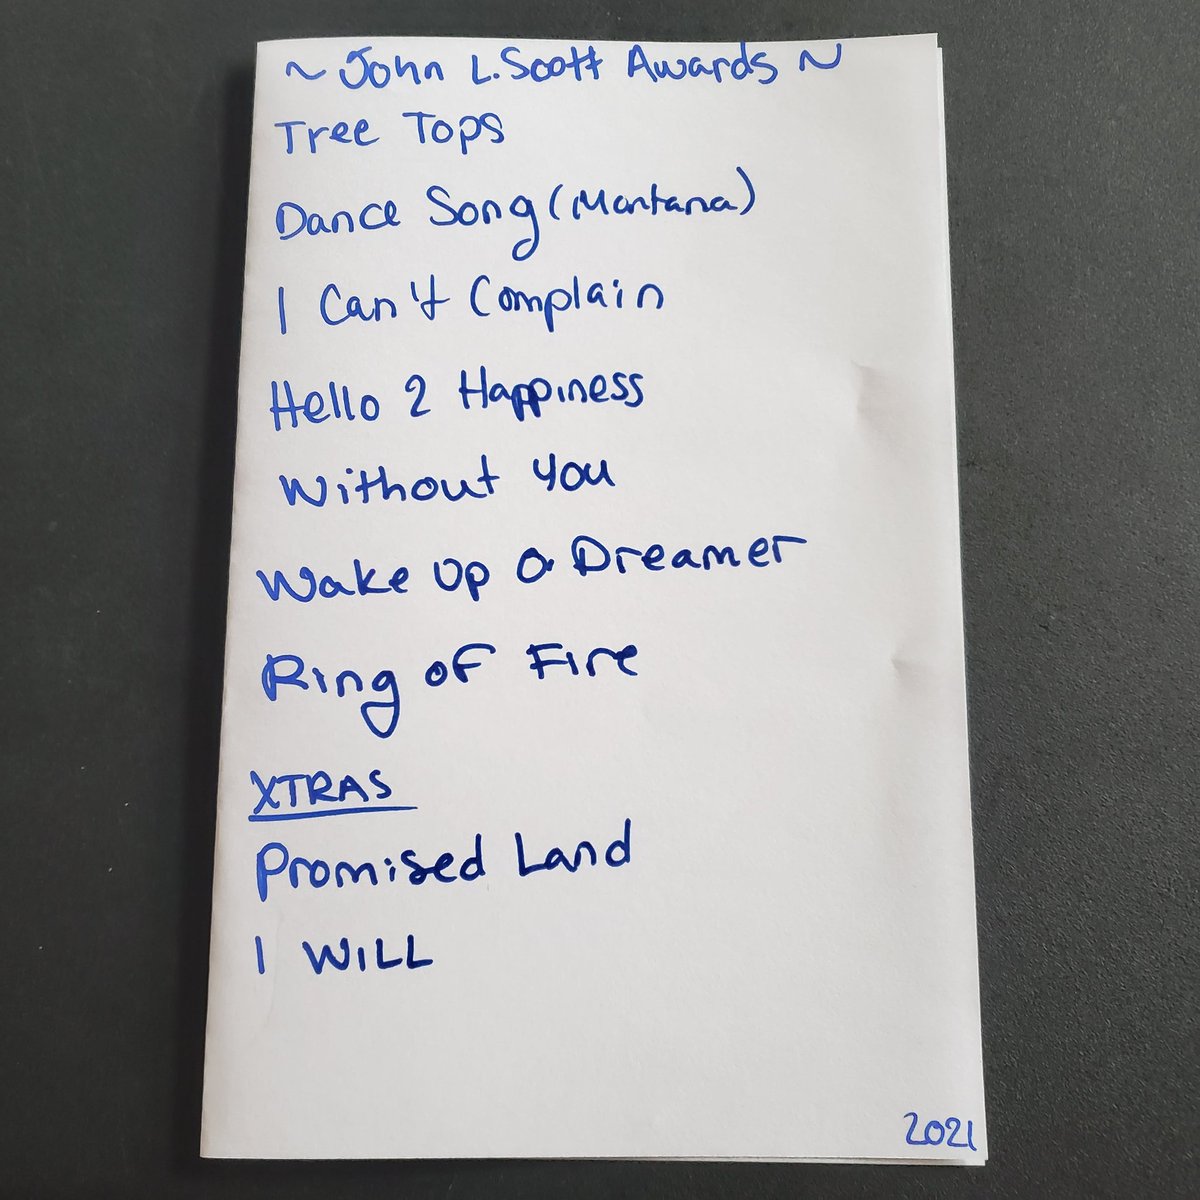 ~ John L. Scott Awards ~
Tree Tops
Dance Song (Montana)
I Can't Complain
Hello 2 Happiness
Without You
Wake Up a Dreamer
Ring of Fire
XTRAS
Promised Land
I WILL
2021